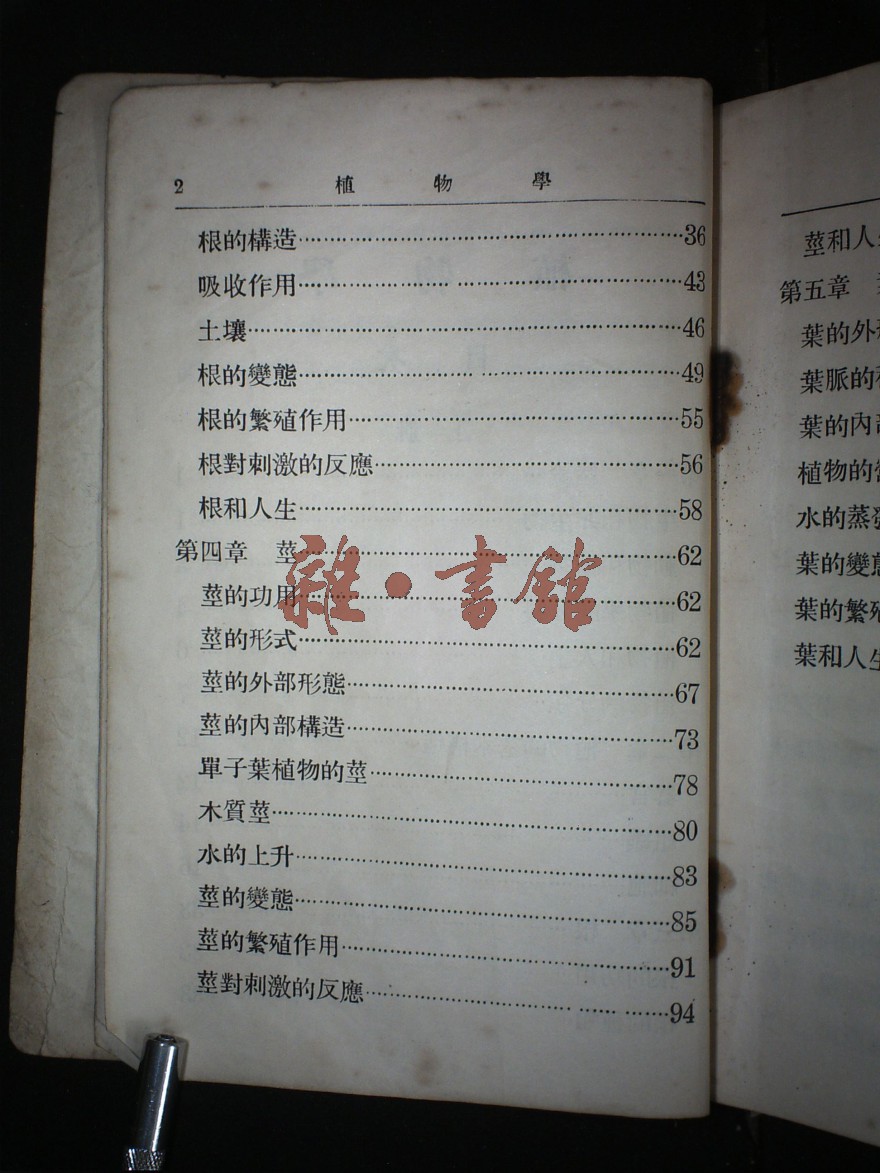 2 植物學
根的構造 36
吸收作用 43
土壤 46
根的變態 49
根的繁殖作用 55
根對刺激的反應 56
根和人生 58
第四章 莖 62
莖的功用 62
莖的形式 62
莖的外部形態 67
莖的內部構造 73
單子葉植物的莖 78
木質莖 80
水的上升 83
莖的變態 85
莖的繁殖作用 91
莖對刺激的反應 94
雜·書館
莖和人
第五章
葉的外
葉脈的
葉的內
植物的
水的蒸
葉的變
葉的繁
葉和人